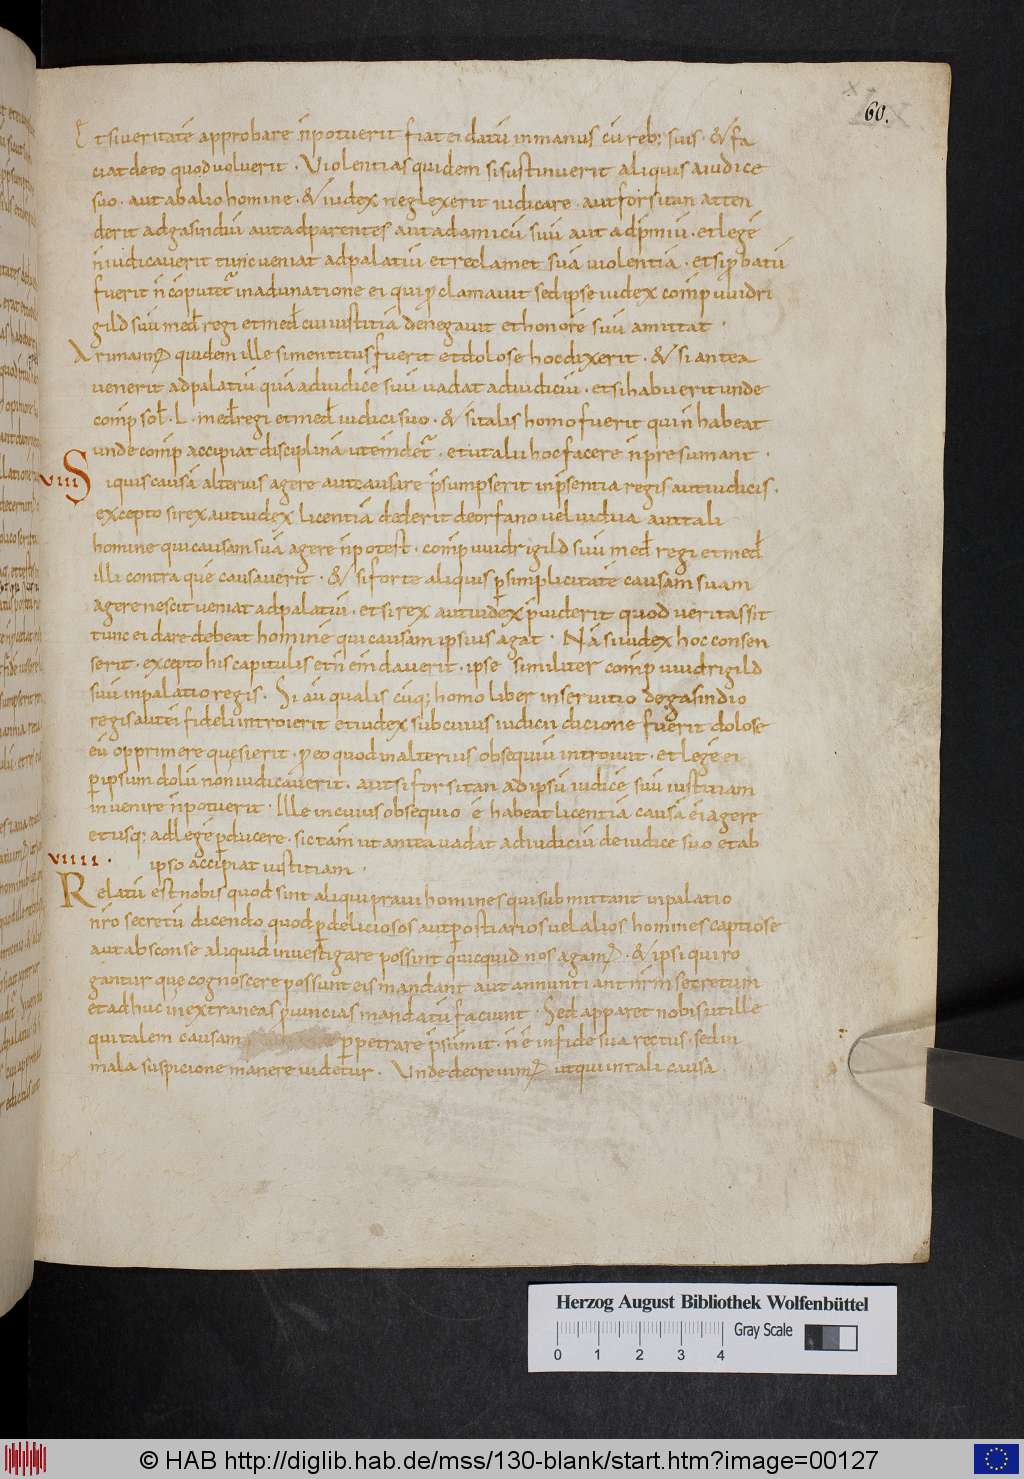 60.
Et si veritatē approbare n̄ potuerit fiat ei datū in manus cū reb; suis · & fa
ciat de eo quod voluerit · Violentias quidem si sustinuerit aliquis a iudice
suo · aut ab alio homine · & iudex neglexerit iudicare · aut forsitan atten
derit ad gasindiū aut ad parentes aut ad amicū suū aut ad p̄miū · et legē
n̄ iudicaverit tunc veniat ad palatiū et reclamet suā violentiā · et si p̱batū
fuerit n̄ cōputet̄ in adunatione ei qui p̱clamavit sed ipse iudex comp̄ uuidri
gild suū med̄ regi et med̄ cui iustitiā denegavit et honorē suū amittat ·
Arimann; quidem ille si mentitus fuerit et dolose hoc dixerit · & si antea
venerit ad palatiū quā ad iudicē suū vadat ad iudiciū · et si habuerit unde
comp̄ sol̄ · L · med̄ regi et med̄ iudici suo · & si talis homo fuerit qui n̄ habeat
unde comp̄ accipiat disciplinā ut emdet̄ · et ut alii hoc facere n̄ presumant ·
VIII Si quis causā alterius agere aut causare p̄sumpserit in p̄sentia regis aut iudicis ·
excepto si rex aut iudex licentiā dederit de orfano vel vidua aut tali
homine qui causam suā agere n̄ potest · comp̄ uuidrigild suū med̄ regi et med̄
illi contra quē causaverit · & si forte aliquis p̱ simplicitatē causam suam
agere nescit veniat ad palatiū · et si rex aut iudex p̱viderit quod veritas sit
tunc ei dare debeat hominē qui causam ipsius agat · Nā si iudex hoc consen
serit · excepto his capitulis et n̄ emdaverit · ipse similiter comp̄ uuidrigild
suū in palatio regis · Si aū qualis cūq; homo liber in servitio de gasindio
regis aut ei fideli introierit et iudex sub cuius iudicii dicione fuerit dolose
eū opprimere quęsierit · p̱ eo quod in alterius obsequiū introivit · et legē ei
p̱ ipsum dolū non iudicaverit · aut si forsitan ad ipsū iudicē suū iustitiam
invenire n̄ potuerit · Ille in cuius obsequio ē habeat licentiā causā ei agere
et usq; ad legē p̱ducere · sic tam̄ ut antea vadat ad iudiciū de iudice suo et ab
ipso accipiat iustitiam ·
VIIII · Relatū est nobis quod sint aliqui pravi homines qui submittant in palatio
nr̄o secretū dicendo quod p̱ deliciosos aut p̱ ostiarios vel alios homines captiose
aut absconse aliquid investigare possint quicquid nos agam; · & ipsi qui ro
gantur que cognoscere possunt eis mandant aut annuntiant nr̄m secretum
et adhuc in extraneas p̱vincias mandatū faciunt · Sed apparet nobis ut ille
qui talem causam p̱petrare p̄sūmit · n̄ ē in fide sua rectus · sed in
mala suspicione manere videtur · Unde decrevim; ut qui in tali causa
Herzog August Bibliothek Wolfenbüttel
Gray Scale
0 1 2 3 4
© HAB http://diglib.hab.de/mss/130-blank/start.htm?image=00127